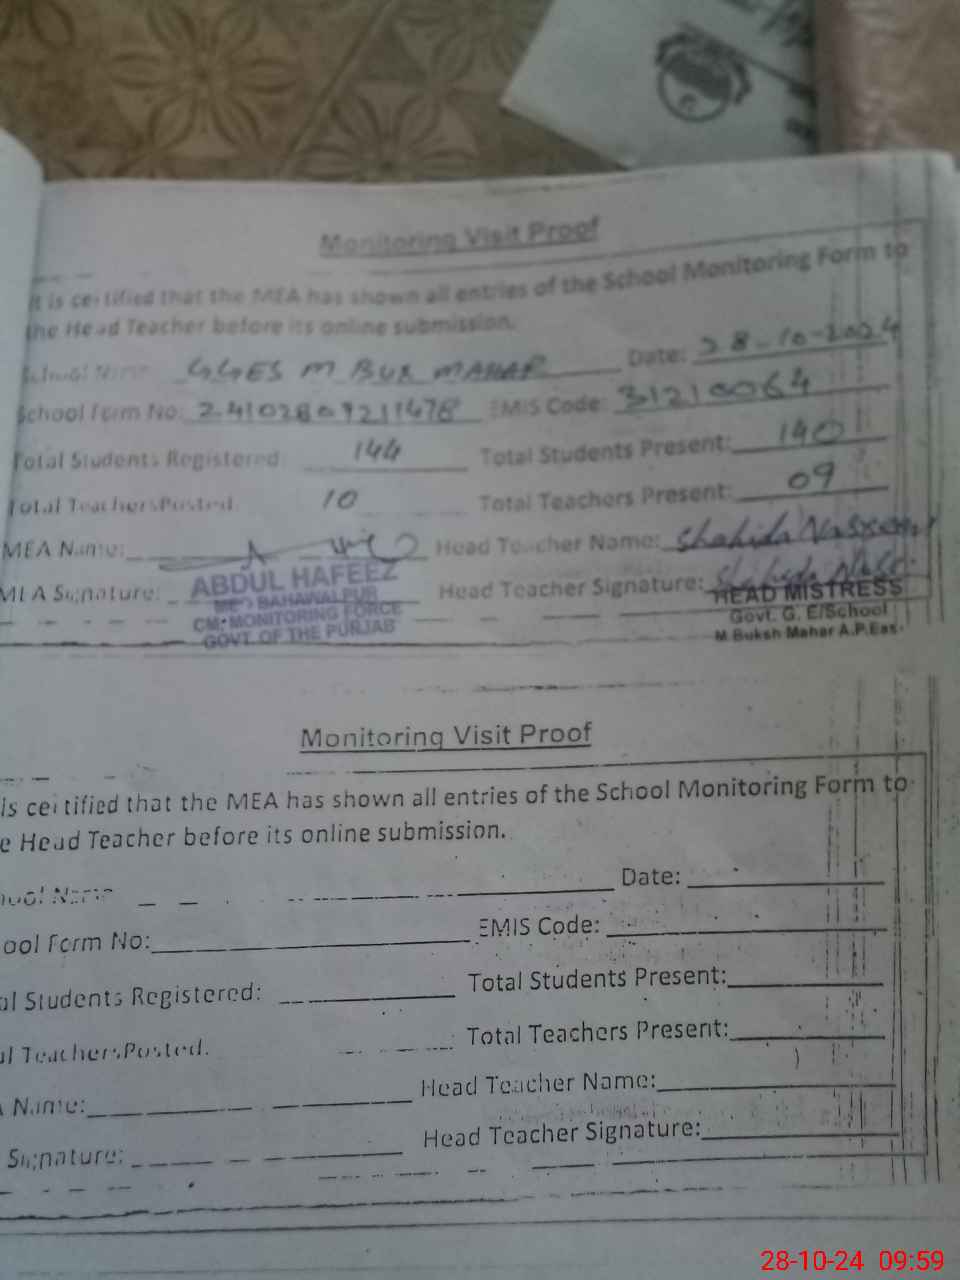 Monitoring Visit Proof
It is certified that the MEA has shown all entries of the School Monitoring Form to
the Head Teacher before its online submission.
School Name GGES M BUX MAHAR Date: 28-10-2024
School Form No: EMIS Code: 31210064
Total Students Registered: 144 Total Students Present: 140
Total TeachersPosted. 10 Total Teachers Present: 09
MEA Name: Head Teacher Name: Shahida Nasreen
MEA Signature: Head Teacher Signature: Shahida
ABDUL HAFEEZ
BAHAWALPUR
CM MONITORING FORCE
GOVT. OF THE PUNJAB
HEAD MISTRESS
Govt. G. E/School
M Buksh Mahar A.P.Eas.
Monitoring Visit Proof
is certified that the MEA has shown all entries of the School Monitoring Form to
e Head Teacher before its online submission.
hool Name Date:
ool Form No: EMIS Code:
al Students Registered: Total Students Present:
al TeachersPosted. Total Teachers Present:
A Name: Head Teacher Name:
Signature: Head Teacher Signature:
28-10-24 09:59